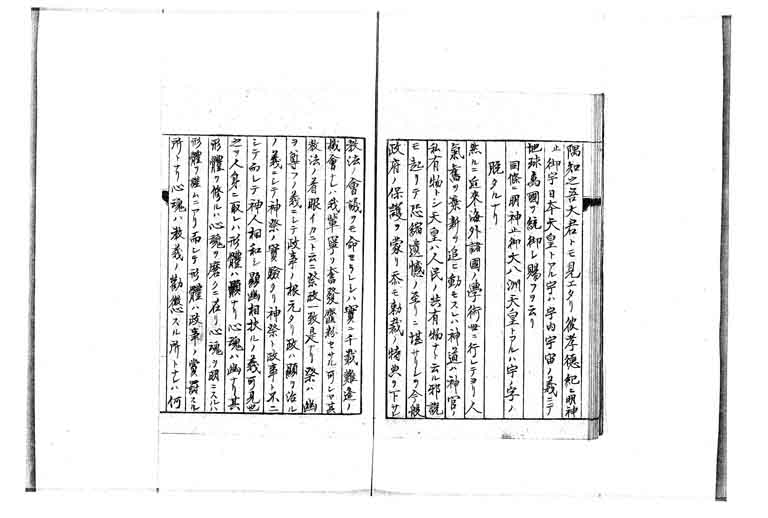 隅知之吾大君トモ見エタリ彼孝德紀ニ明神
止御宇日本天皇トアル宇ハ宇内宇宙ノ義ニテ
地球萬國ヲ統御シ賜フヲ云リ
同條ニ明神止御大八洲天皇トアルハ宇ノ字ノ
脱タルナリ
然ルニ近來海外諸國ノ學術世ニ行レテヨリ人
氣舊ヲ棄新ヲ追ヒ動モスレハ神道ハ神官ノ
私有物トシ天皇ハ人民ノ共有物ナト云ル邪説
モ起リテ恐縮遺憾ノ至リニ堪サルヲ今般
政府ノ保護ヲ蒙リ忝モ勅裁ノ特典ヲ下サレ
教法ノ會議ヲモ命セラレシハ實ニ千載難逢ノ
機會ナレハ我輩寧ソ奮發勉セサル可シヤ其
教法ノ着眼イカニト云ニ祭政一致是ナリ祭ハ幽
ヲ尊フノ義ニシテ政事ノ根元タリ政ハ顯ヲ治ル
ノ義ニシテ神祭ノ實驗タリ神祭ト政事ト不二
シテ而シテ神人相和シ顯幽相扶ルノ義可見也
之ヲ人身ニ取レハ形體ハ顯ナリ心魂ハ幽ナリ其
形體ヲ修ルハ心魂ヲ磨クニ在リ心魂ヲ明ニスルハ
形體ヲ ムニアリ而シテ形體ハ政事ノ賞罰スル
所トナリ心魂ハ教義ノ勸懲スル所トナレハ何